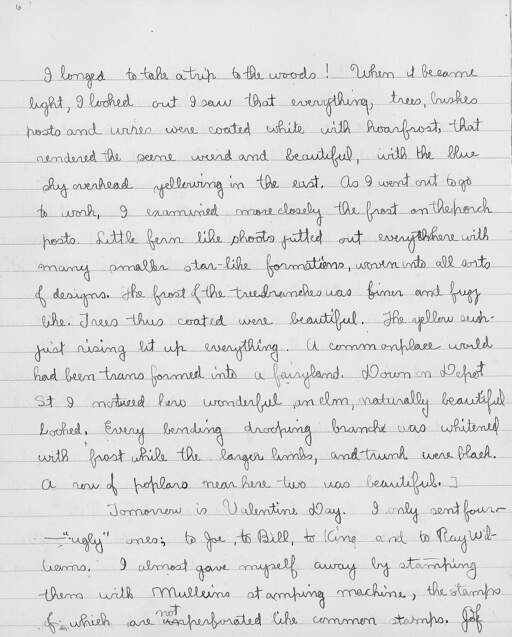 6
I longed to take a trip to the woods! When it became
light, I looked out I saw that everything, trees, bushes
posts and wires were coated white with hoarfrost, that
rendered the scene weird and beautiful, with the blue
sky overhead yellowing in the east. As I went out to go
to work, I examined more closely the frost on the porch
posts. Little fern like shoots jutted out everywhere with
many smaller star-like formations, woven into all sorts
of designs. The frost of the tree branches was finer and fuzz
like. Trees thus coated were beautiful. The yellow sun
just rising lit up everything. A commonplace world
had been transformed into a fairyland. Down on Depot
St I noticed how wonderful an elm, naturally beautiful
looked. Every bending drooping branch was whitened
with frost while the larger limbs, and trunk were black.
A row of poplars near here two was beautiful. ]
Tomorrow is Valentine Day. I only sent four —
— "ugly" ones; to Joe, to Bill, to King and to Ray Wil-
liams. I almost gave myself away by stamping
them with Mulleins stamping machine, the stamps
of which are not perforated like common stamps. Of